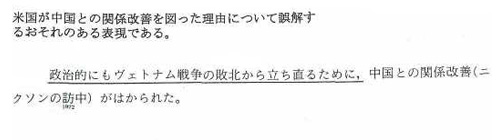 米国が中国との関係改善を図った理由について誤解す
るおそれのある表現である。
政治的にもヴェトナム戦争の敗北から立ち直るために，中国との関係改善（ニ
クソンの訪中）がはかられた。
1972